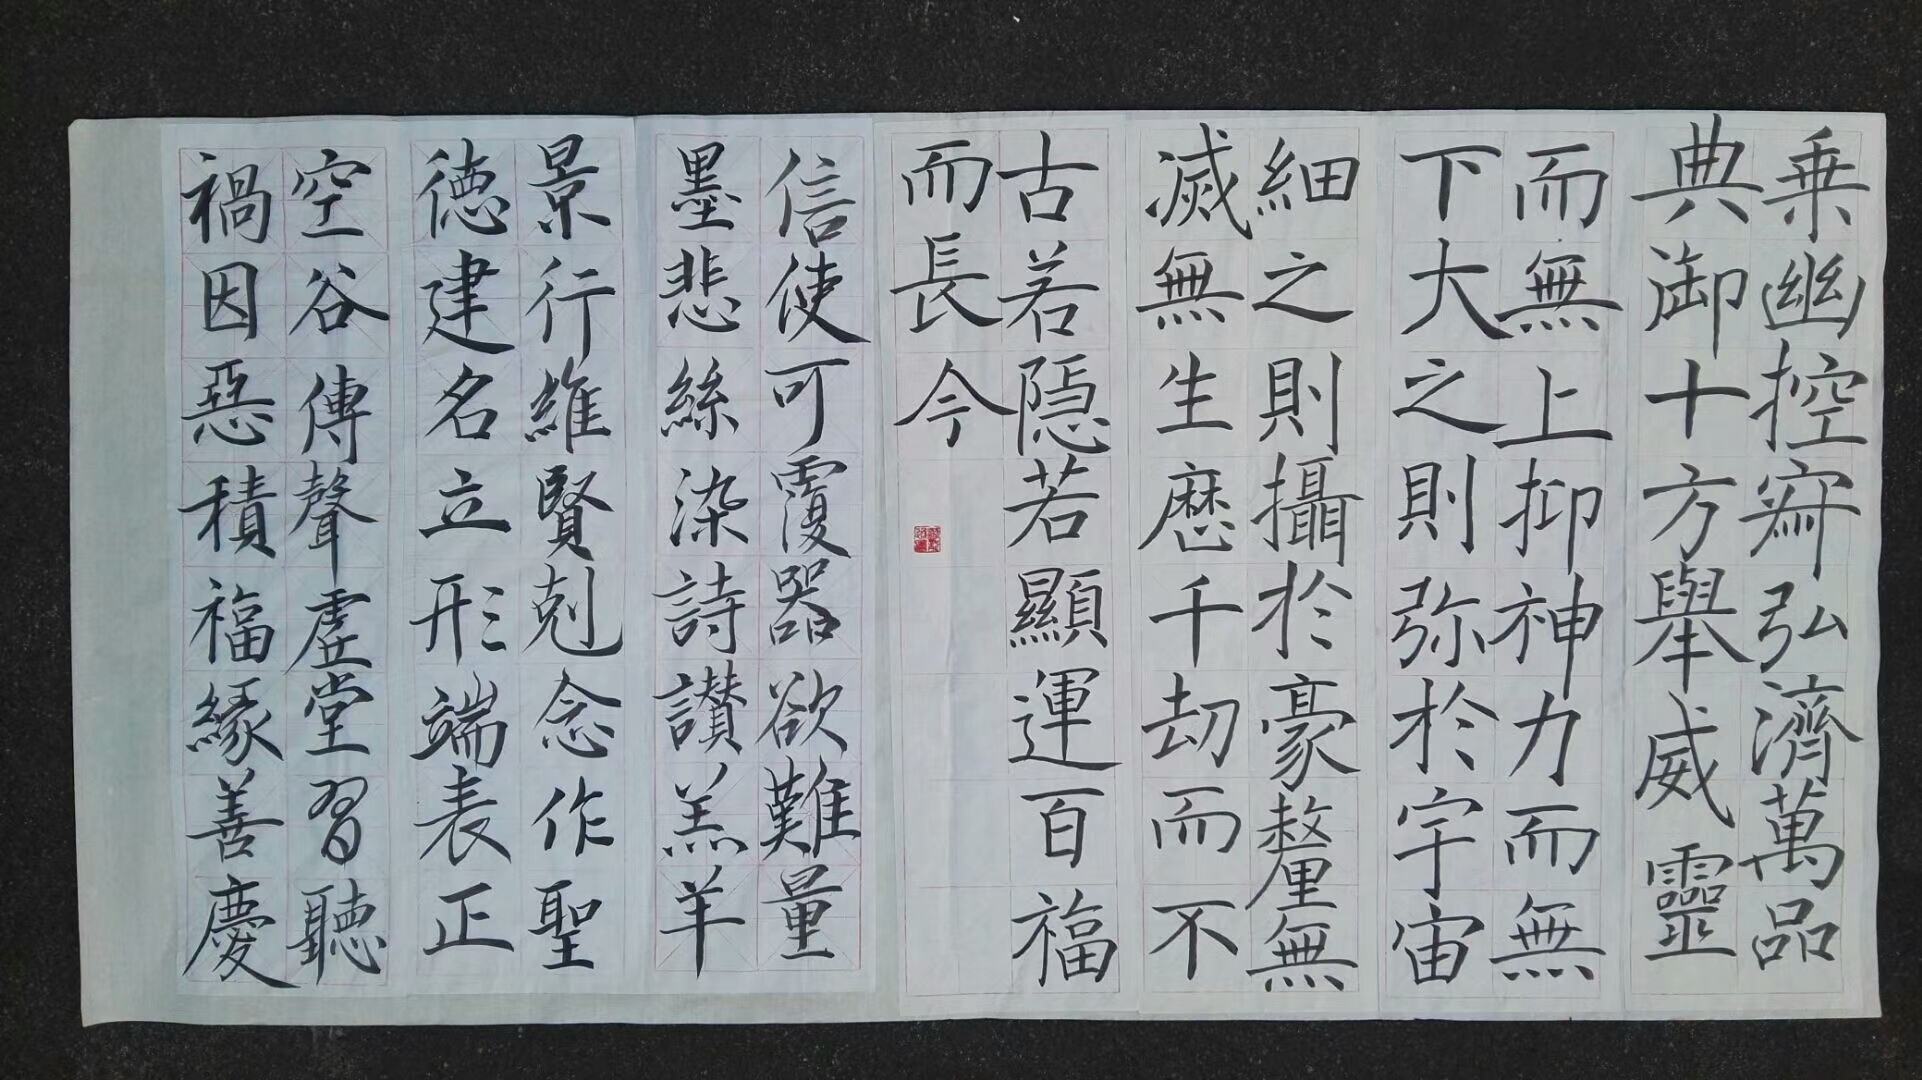 乗幽控寂弘濟萬品
典御十方舉威靈
而無上抑神力而無
下大之則弥於宇宙
細之則攝於豪釐無
滅無生歷千劫而不
古若隱若顯運百福
而長今
信使可覆器欲難量
墨悲絲染詩讃羔羊
景行維賢剋念作聖
德建名立形端表正
空谷傳聲虛堂習聽
禍因惡積福緣善慶